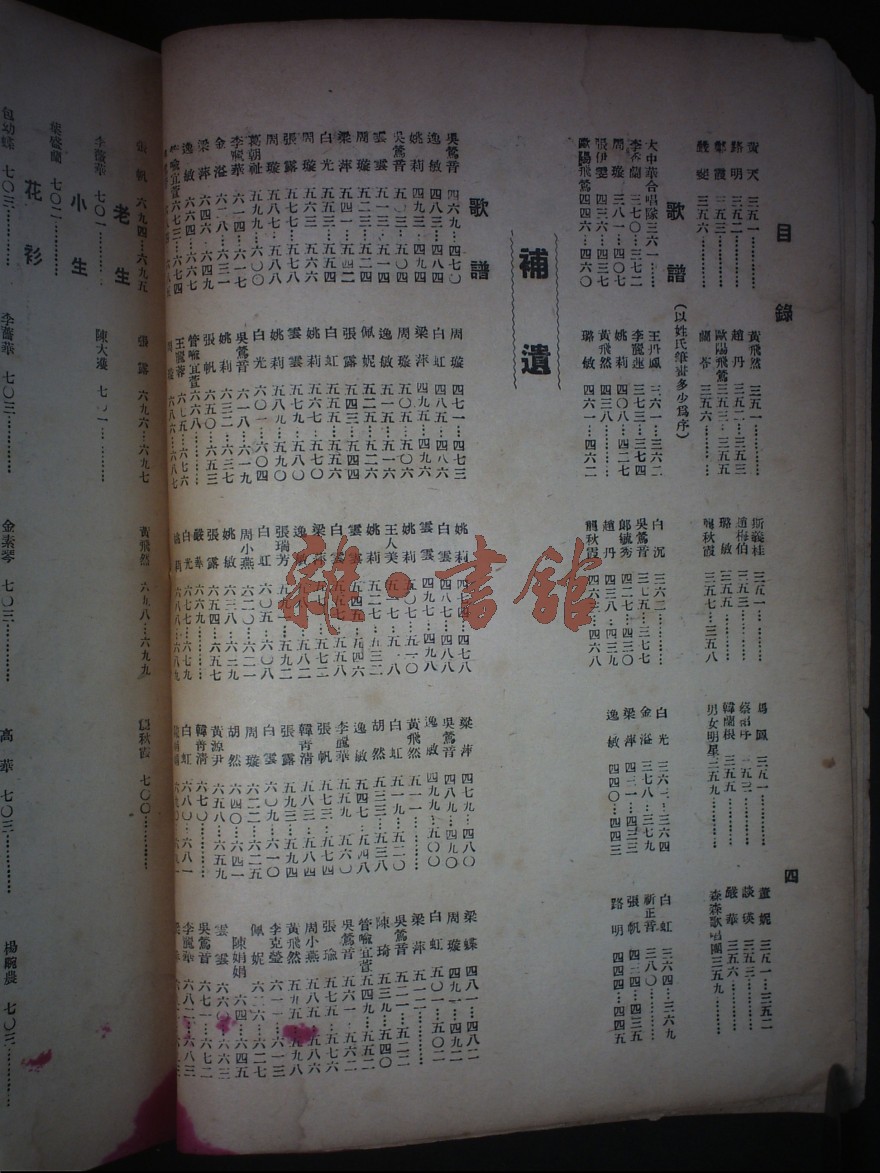 目錄 四
黃天 三五一………… 黃飛然 三五一………… 斯義桂 三五一………… 三五一………… 董妮 三五一…三五二
路明 三五二………… 趙丹 三五二…三五三 趙梅伯 談瑛 三五三…………
三五三………… 歐陽飛鶯 三五三…三五五 璐敏 三五五………… 韓蘭根 三五五………… 嚴華 三五六…………
嚴斐 三五六………… 蘭苓 三五六………… 龔秋霞 三五七…三五八 男女明星 三五九………… 森森歌唱團 三五九…………
歌譜 (以姓氏筆畫多少爲序)
大中華合唱隊 三六一…… 王丹鳳 三六一…三六二 白沉 三六二………… 白光 三六三…三六四 白虹 三六四…三六九
李香蘭 三七〇…三七二 李麗蓮 三七三…三七四 吳鶯音 三七五…三七七 金溢 三七八…三七九 祈正音 三八〇…………
周璇 三八一…四〇七 姚莉 四〇八…四二七 郎毓秀 四二七…四三〇 梁萍 四三一…四三三 張帆 四三四…四三五
張伊雯 四三六…四三七 黃飛然 四三八………… 趙丹 四三八…四三九 逸敏 四四〇…四四三 路明 四四四…四四五
歐陽飛鶯 四四六…四六〇 璐敏 四六一…四六二 龔秋霞 四六三…四六八
補遺
歌譜
吳鶯音 四六九…四七〇 周璇 四七一…四七三 姚莉 四七四…四七八 梁萍 四七九…四八〇 梁蝶 四八一…四八二
逸敏 四八三…四八四 白虹 四八五…四八六 白雲 四八七…四八八 吳鶯音 四八九…四九〇 周璇 四九一…四九二
姚莉 四九三…四九四 梁萍 四九五…四九六 雲雲 四九七…四九八 逸敏 四九九…五〇〇 白虹 五〇一…五〇二
吳鶯音 五〇三…五〇四 周璇 五〇五…五〇六 姚莉 五〇七…五一〇 黃飛然 五一一………… 梁萍 五一二…………
雲雲 五一三…五一四 逸敏 五一五…五一六 王人美 五一七…五一八 白虹 五一九…五二〇 吳鶯音 五二一…五二二
周璇 五二三…五二四 佩妮 五二五…五二六 姚莉 五二七…五三二 胡然 五三三…五三八 陳琦 五三九…五四〇
梁萍 五四一…五四二 張露 五四三…五四四 雲雲 五四五…五四六 逸敏 五四七…五四八 管喻宜萱 五四九…五五二
白光 五五三…五五四 白虹 白雲 李麗華 五五九…五六〇 吳鶯音 五六一…五六二
周璇 五六三…五六六 姚莉 五六七…五七〇 梁萍 張帆 五七三…五七四 張瑜 五七五…五七六
張露 五七七…五七八 雲雲 五七九…五八〇 逸敏 韓菁清 五八三…五八四 周小燕 五八五…五八六
周璇 姚莉 五八九…五九〇 張瑞芳 張露 五九三…五九四 黃飛然
葛朝祉 五九九…六〇〇 白光 六〇一…六〇四 白虹 六〇五…六〇八 白雲 六〇九…六一〇 李克瑩
李麗華 六一四…六一七 吳鶯音 六一八…六一九 周小燕 六二〇…六二一 周璇 六二二…六二五 佩妮 六二六…六二七
金溢 六二八…六三一 姚莉 六三二…六三七 姚敏 胡然 六四〇…六四一 陳娟娟
梁萍 六四六…六四九 張帆 六五〇…六五三 張露 六五四…六五七 黃源尹 六五八…六五九 雲雲 六六〇…………
逸敏 管喻宜萱 六六八…… 嚴華 六六九………… 韓菁清 六七〇………… 吳鶯音 六七一…六七二
管喻宜萱 六七三…六七四 王麗蓉 六七五…六七六 白光 六七七…六七九 白虹 六八〇…六八一 李麗華 六八二…六八三
張帆 六九四…六九五 張露 六九六…六九七 黃飛然 六九八…六九九 龔秋霞 七〇〇…………
老生
李薔華 七〇一………… 陳大濩 七〇一…………
小生
葉盛蘭 七〇二…………
花衫
包幼蝶 七〇三………… 李薔華 七〇三………… 金素琴 七〇三………… 高華 七〇三………… 楊畹農 七〇三…………
雜·書館